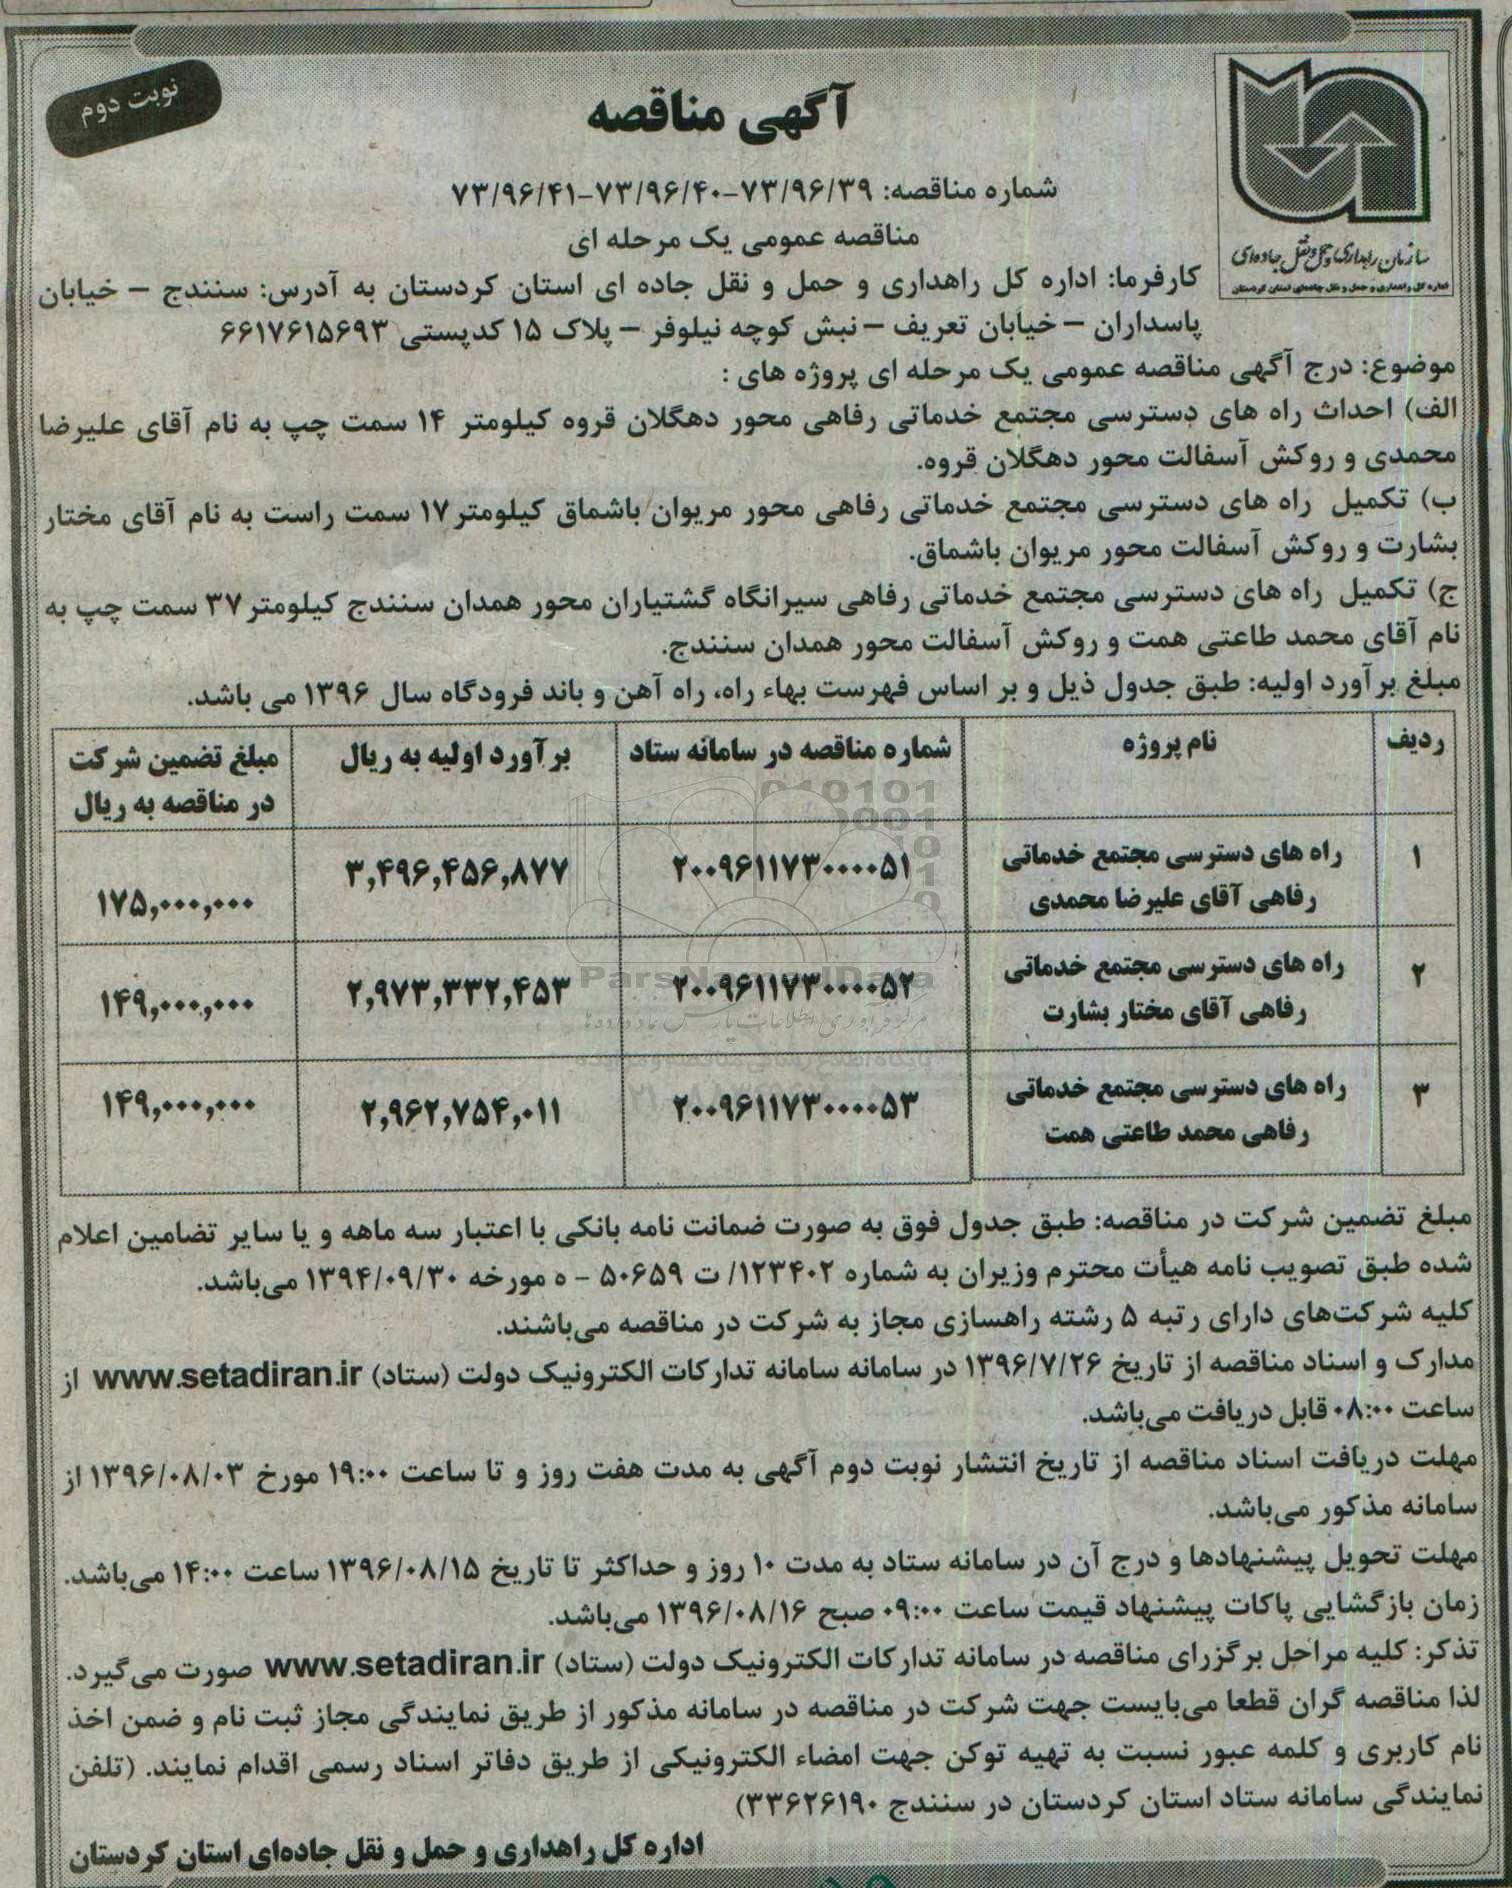 نوبت دوم
آگهی مناقصه
شماره مناقصه: ۷۳/۹۶/۳۹-۷۳/۹۶/۴۰-۷۳/۹۶/۴۱
مناقصه عمومی یک مرحله ای
سازمان راهداری و حمل و نقل جاده‌ای
اداره کل راهداری و حمل و نقل جاده‌ای استان کردستان
کارفرما: اداره کل راهداری و حمل و نقل جاده ای استان کردستان به آدرس: سنندج – خیابان
پاسداران – خیابان تعریف – نبش کوچه نیلوفر – پلاک ۱۵ کدپستی ۶۶۱۷۶۱۵۶۹۳
موضوع: درج آگهی مناقصه عمومی یک مرحله ای پروژه های :
الف) احداث راه های دسترسی مجتمع خدماتی رفاهی محور دهگلان قروه کیلومتر ۱۴ سمت چپ به نام آقای علیرضا
محمدی و روکش آسفالت محور دهگلان قروه.
ب) تکمیل راه های دسترسی مجتمع خدماتی رفاهی محور مریوان باشماق کیلومتر ۱۷ سمت راست به نام آقای مختار
بشارت و روکش آسفالت محور مریوان باشماق.
ج) تکمیل راه های دسترسی مجتمع خدماتی رفاهی سیرانگاه گشتیاران محور همدان سنندج کیلومتر ۳۷ سمت چپ به
نام آقای محمد طاعتی همت و روکش آسفالت محور همدان سنندج.
مبلغ برآورد اولیه: طبق جدول ذیل و بر اساس فهرست بهاء راه، راه آهن و باند فرودگاه سال ۱۳۹۶ می باشد.
ردیف نام پروژه شماره مناقصه در سامانه ستاد برآورد اولیه به ریال مبلغ تضمین شرکت
در مناقصه به ریال
۱ راه های دسترسی مجتمع خدماتی
رفاهی آقای علیرضا محمدی ۲۰۰۹۶۱۱۷۳۰۰۰۰۵۱ ۳,۴۹۶,۴۵۶,۸۷۷ ۱۷۵,۰۰۰,۰۰۰
۲ راه های دسترسی مجتمع خدماتی
رفاهی آقای مختار بشارت ۲۰۰۹۶۱۱۷۳۰۰۰۰۵۲ ۲,۹۷۳,۳۳۲,۴۵۳ ۱۴۹,۰۰۰,۰۰۰
۳ راه های دسترسی مجتمع خدماتی
رفاهی محمد طاعتی همت ۲۰۰۹۶۱۱۷۳۰۰۰۰۵۳ ۲,۹۶۲,۷۵۴,۰۱۱ ۱۴۹,۰۰۰,۰۰۰
مبلغ تضمین شرکت در مناقصه: طبق جدول فوق به صورت ضمانت نامه بانکی با اعتبار سه ماهه و یا سایر تضامین اعلام
شده طبق تصویب نامه هیأت محترم وزیران به شماره ۱۲۳۴۰۲/ ت ۵۰۶۵۹ - ه مورخه ۱۳۹۴/۰۹/۳۰ می‌باشد.
کلیه شرکت‌های دارای رتبه ۵ رشته راهسازی مجاز به شرکت در مناقصه می‌باشند.
مدارک و اسناد مناقصه از تاریخ ۱۳۹۶/۷/۲۶ در سامانه سامانه تدارکات الکترونیک دولت (ستاد) www.setadiran.ir از
ساعت ۰۸:۰۰ قابل دریافت می‌باشد.
مهلت دریافت اسناد مناقصه از تاریخ انتشار نوبت دوم آگهی به مدت هفت روز و تا ساعت ۱۹:۰۰ مورخ ۱۳۹۶/۰۸/۰۳ از
سامانه مذکور می‌باشد.
مهلت تحویل پیشنهادها و درج آن در سامانه ستاد به مدت ۱۰ روز و حداکثر تا تاریخ ۱۳۹۶/۰۸/۱۵ ساعت ۱۴:۰۰ می‌باشد.
زمان بازگشایی پاکات پیشنهاد قیمت ساعت ۰۹:۰۰ صبح ۱۳۹۶/۰۸/۱۶ می‌باشد.
تذکر: کلیه مراحل برگزرای مناقصه در سامانه تدارکات الکترونیک دولت (ستاد) www.setadiran.ir صورت می‌گیرد.
لذا مناقصه گران قطعا می‌بایست جهت شرکت در مناقصه در سامانه مذکور از طریق نمایندگی مجاز ثبت نام و ضمن اخذ
نام کاربری و کلمه عبور نسبت به تهیه توکن جهت امضاء الکترونیکی از طریق دفاتر اسناد رسمی اقدام نمایند. (تلفن
نمایندگی سامانه ستاد استان کردستان در سنندج ۳۳۶۲۶۱۹۰)
اداره کل راهداری و حمل و نقل جاده‌ای استان کردستان